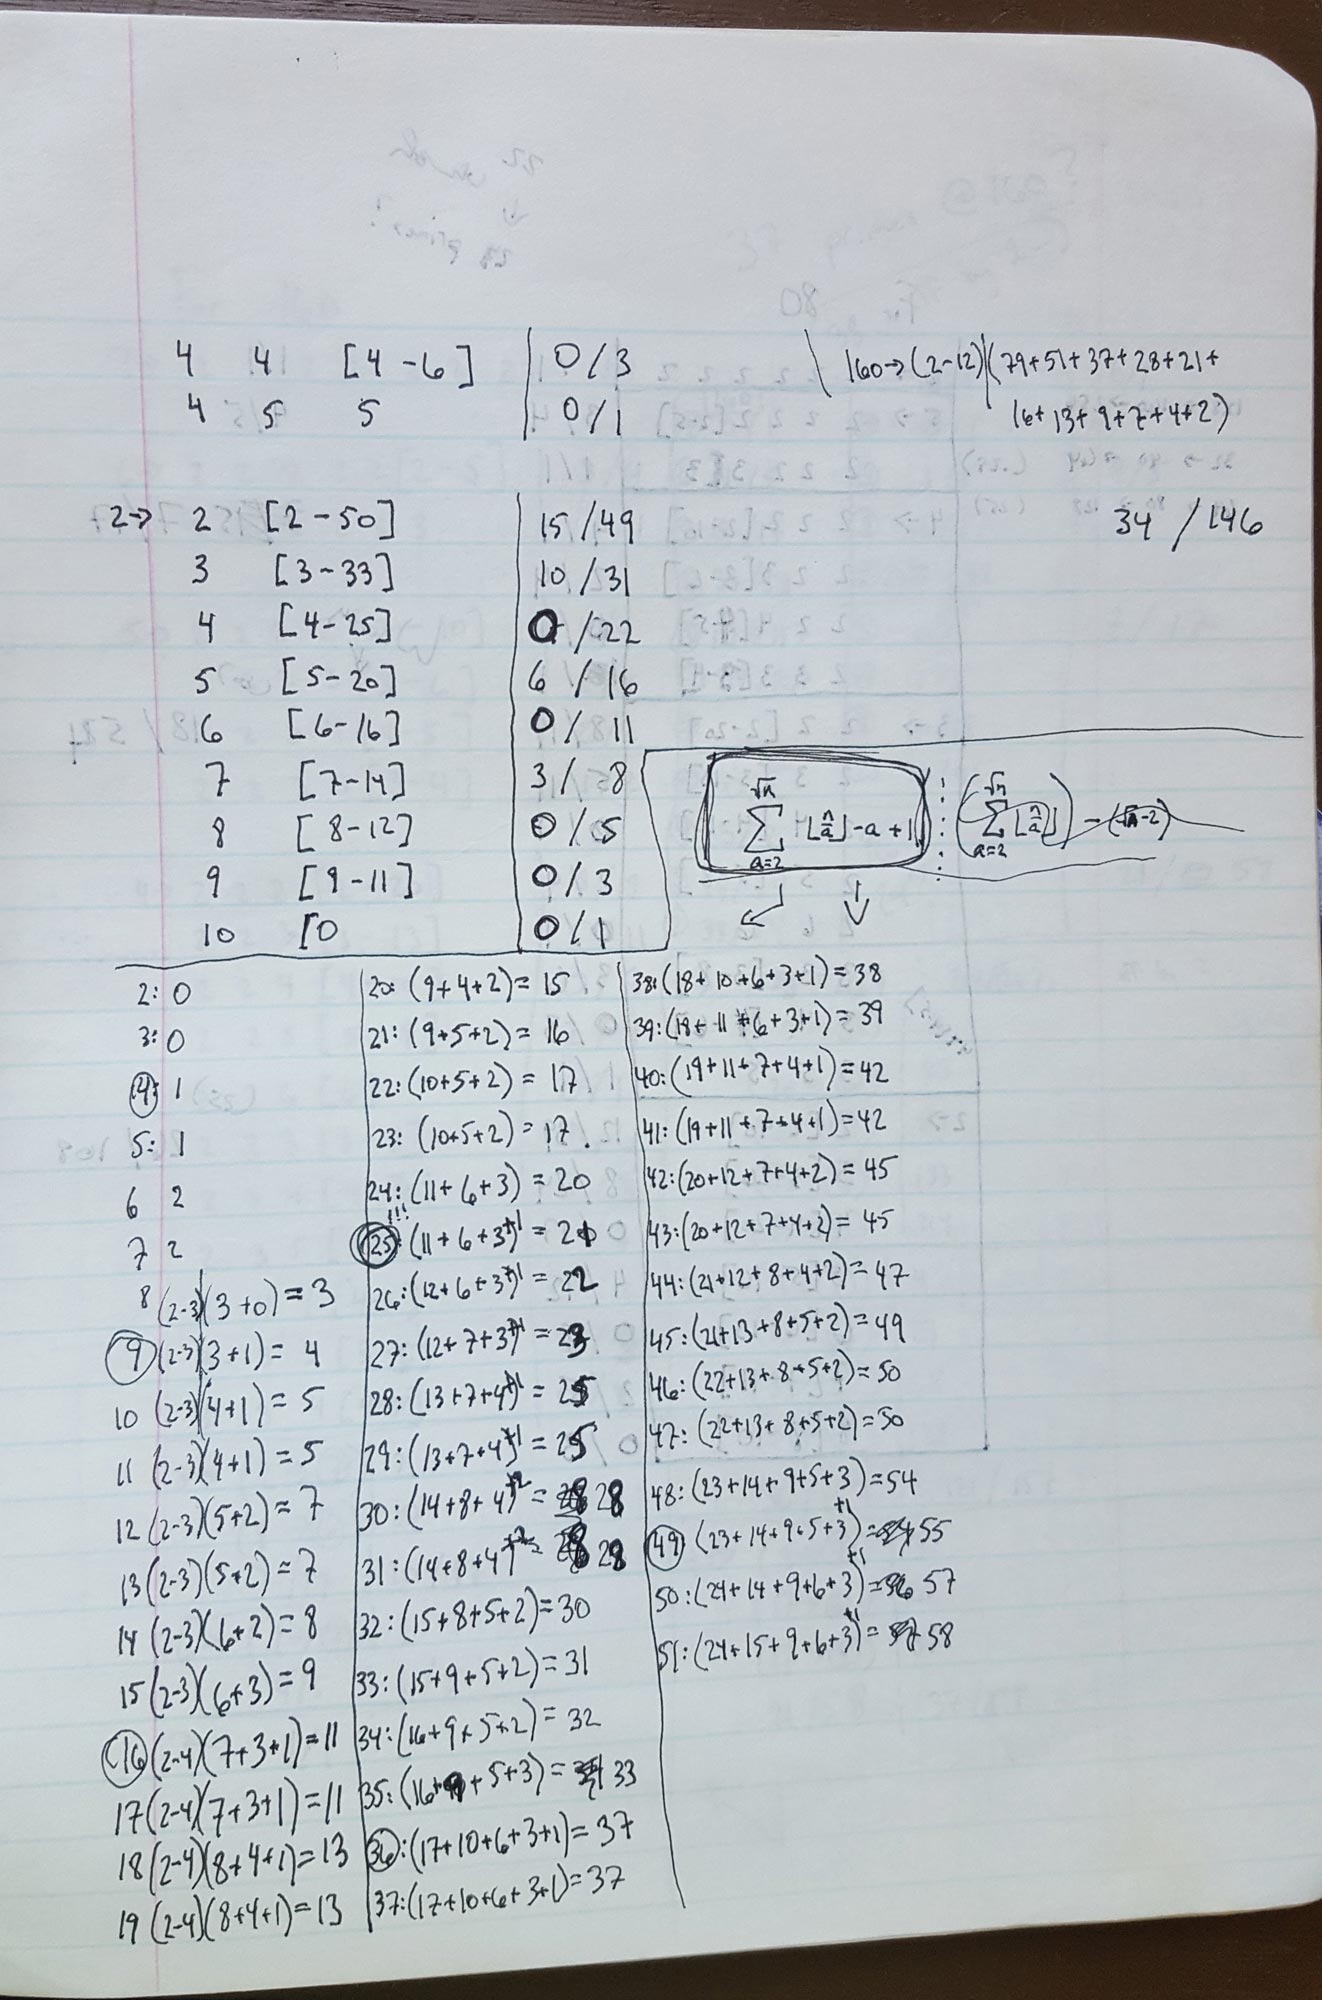 4 4 [4-6] | 0/3
160→(2-12)(79+51+37+28+21+
4 5 5 | 0/1
16+13+9+7+4+2)
2→ 2 [2-50] | 15/49
34/146
3 [3-33] | 10/31
4 [4-25] | 0/22
5 [5-20] | 6/16
6 [6-16] | 0/11
7 [7-14] | 3/8
8 [8-12] | 0/5
9 [9-11] | 0/3
10 [0 | 0/1
√n ∑ a=2 ⌊n/a⌋-a+1
(√n ∑ a=2 ⌊n/a⌋) - (√n-2)
2: 0
3: 0
4: 1
5: 1
6 2
7 2
8 (2-3)(3+0)=3
9 (2-3)(3+1)=4
10 (2-3)(4+1)=5
11 (2-3)(4+1)=5
12 (2-3)(5+2)=7
13 (2-3)(5+2)=7
14 (2-3)(6+2)=8
15 (2-3)(6+3)=9
16 (2-4)(7+3+1)=11
17 (2-4)(7+3+1)=11
18 (2-4)(8+4+1)=13
19 (2-4)(8+4+1)=13
20: (9+4+2)=15
21: (9+5+2)=16
22: (10+5+2)=17
23: (10+5+2)=17.
24: (11+6+3)=20
!!!
25: (11+6+3)+1=21
26: (12+6+3)+1=22
27: (12+7+3)+1=23
28: (13+7+4)+1=25
29: (13+7+4)+1=25
30: (14+8+4)+2=28
31: (14+8+4)+2=28
32: (15+8+5+2)=30
33: (15+9+5+2)=31
34: (16+9+5+2)=32
35: (16+9+5+3)=33
36: (17+10+6+3+1)=37
37: (17+10+6+3+1)=37
38: (18+10+6+3+1)=38
39: (18+11+6+3+1)=39
40: (19+11+7+4+1)=42
41: (19+11+7+4+1)=42
42: (20+12+7+4+2)=45
43: (20+12+7+4+2)=45
44: (21+12+8+4+2)=47
45: (21+13+8+5+2)=49
46: (22+13+8+5+2)=50
47: (22+13+8+5+2)=50
48: (23+14+9+5+3)=54
49 (23+14+9+5+3)+1=55
50: (24+14+9+6+3)+1=57
51: (24+15+9+6+3)+1=58